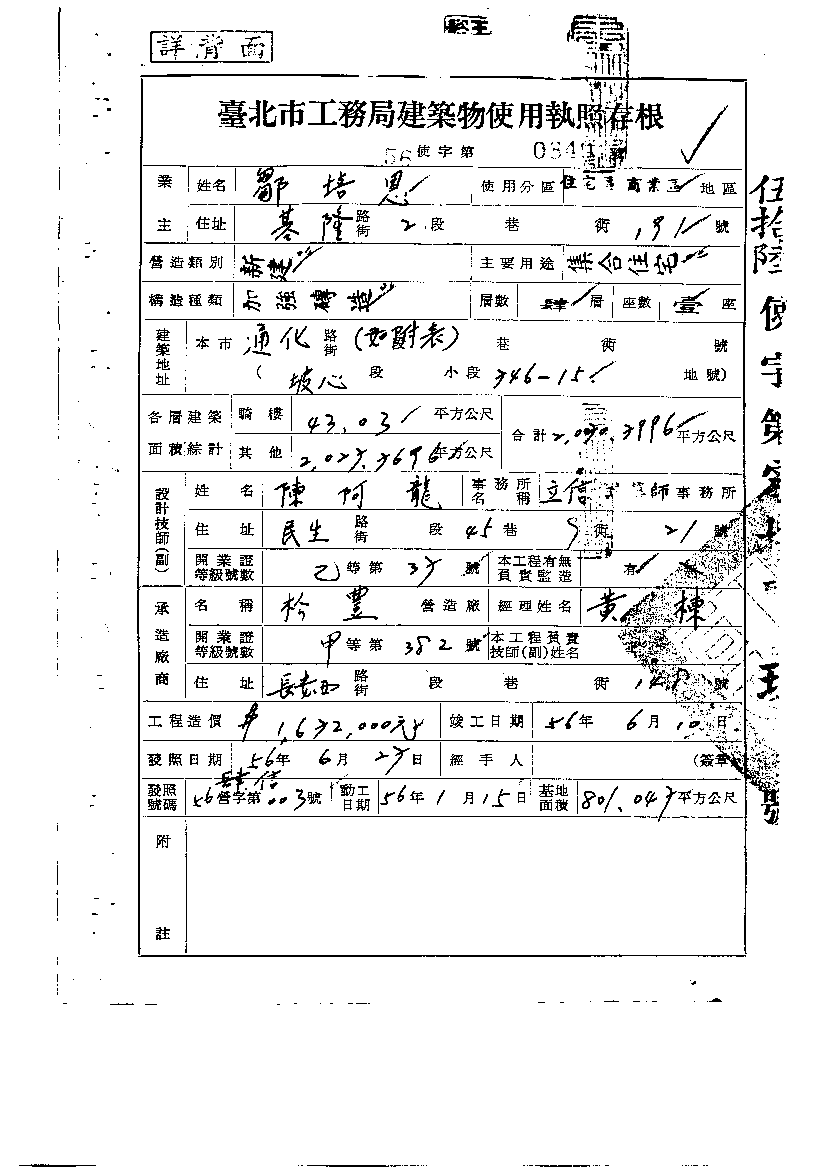 詳背面
臺北市工務局建築物使用執照存根
56 使字第 號
業主 姓名 鄒培恩 使用分區 住宅 商業區 地區
住址 基隆 路街 2 段 巷 街 191 號
營造類別 新建 主要用途 集合住宅
構造種類 加強磚造 層數 肆 層 座數 壹 座
建築地址 本市 通化 路街 (如附表) 巷 街 號
( 坡心 段 小段 346-15 地號)
各層建築面積綜計 騎樓 43.03 平方公尺 合計 平方公尺
其他 平方公尺
設計技師(副) 姓名 陳阿龍 事務所名稱 立信 師事務所
住址 民生 路街 段 45 巷 街 21 號
開業證等級號數 乙等第 37 號 本工程有無負責監造 有
承造廠商 名稱 松豐 營造廠 經理姓名 黃 棟
開業證等級號數 甲等第 382 號 本工程負責技師(副)姓名
住址 長安西 路街 段 巷 街 號
工程造價 竣工日期 56年 6月 10日
發照日期 56年 6月 27日 經手人 (簽章)
發照號碼 56營字第 003號 動工日期 56年 1月 15日 基地面積 801.047平方公尺
附註
伍拾陸使字第 號